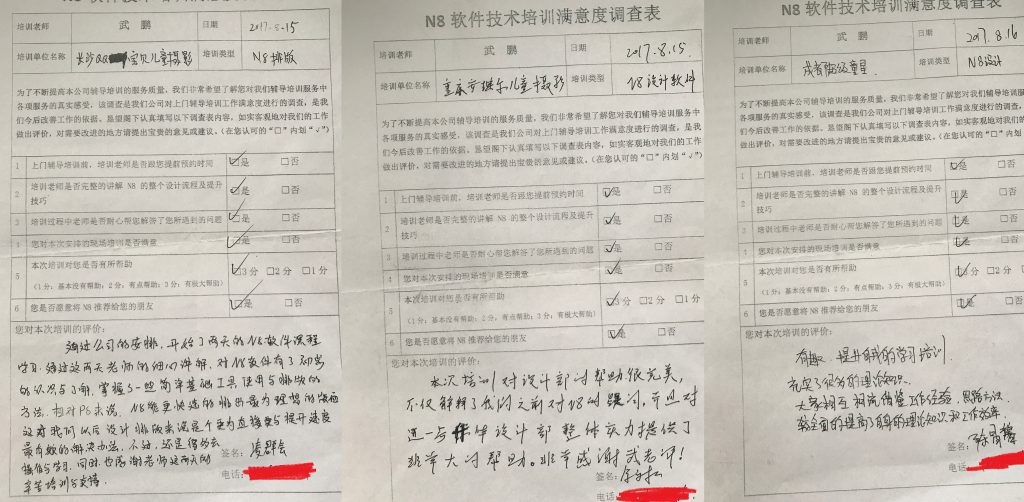 N8 软件技术培训满意度调查表
培训老师 武 鹏 日期 2017.8.15
培训单位名称 长沙QQ 宝贝儿童摄影 培训类型 N8排版
为了不断提高本公司辅导培训的服务质量，我们非常希望了解您对我们辅导培训工作中
各项服务的真实感受，该调查是我们公司对上门辅导培训工作满意度进行的调查，是我
们今后改善工作的依据。恳望阁下认真填写以下调查表内容，如实客观地对我们的工作
做出评价，对需要改进的地方请提出宝贵的意见或建议。（在您认可的“□”内划“√”）
1 上门辅导培训前，培训老师是否跟您提前预约时间 ☑是 □否
2 培训老师是否完整的讲解 N8 的整个设计流程及提升技巧 ☑是 □否
3 培训过程中老师是否耐心帮您解答了您所遇到的问题 ☑是 □否
4 您对本次安排的现场培训是否满意 ☑是 □否
5 本次培训对您是否有所帮助 ☑3分 □2分 □1分
（1分：基本没有帮助；2分：有点帮助；3分：有极大帮助）
6 您是否愿意将 N8 推荐给您的朋友 ☑是 □否
您对本次培训的评价：
通过公司的安排，开始了两天的N8软件课程
学习，经过这两天老师的细心讲解，对N8软件有了初步
的认识与了解，掌握了一些简单基础工具使用与排版的
方法，相对PS来说，N8能更快速的排出最为理想的版面
这对我们以后设计排版来说是个更为直接与提升速度
最有效的解决办法，不过，还是得多去
操作与学习，同时也感谢老师这两天的
辛苦培训与交情。
签名：凌群会
电话：
N8 软件技术培训满意度调查表
培训老师 武 鹏 日期 2017.8.15.
培训单位名称 重庆市 儿童摄影 培训类型 N8设计软件
为了不断提高本公司辅导培训的服务质量，我们非常希望了解您对我们辅导培训工作中
各项服务的真实感受，该调查是我们公司对上门辅导培训工作满意度进行的调查，是我
们今后改善工作的依据。恳望阁下认真填写以下调查表内容，如实客观地对我们的工作
做出评价，对需要改进的地方请提出宝贵的意见或建议。（在您认可的“□”内划“√”）
1 上门辅导培训前，培训老师是否跟您提前预约时间 ☑是 □否
2 培训老师是否完整的讲解 N8 的整个设计流程及提升技巧 ☑是 □否
3 培训过程中老师是否耐心帮您解答了您所遇到的问题 ☑是 □否
4 您对本次安排的现场培训是否满意 ☑是 □否
5 本次培训对您是否有所帮助 ☑3分 □2分 □1分
（1分：基本没有帮助；2分：有点帮助；3分：有极大帮助）
6 您是否愿意将 N8 推荐给您的朋友 ☑是 □否
您对本次培训的评价：
本次培训对设计部门帮助很完美，
不仅解释了我们之前对N8的疑问，并且对
进一步 设计部整体实力提供了
非常大的帮助。非常感谢武老师！
签名：
电话：
N8 软件技术培训满意度调查表
培训老师 武 鹏 日期 2017.8.16
培训单位名称 成都 童星 培训类型 N8设计
为了不断提高本公司辅导培训的服务质量，我们非常希望了解您对我们辅导培训工作中
各项服务的真实感受，该调查是我们公司对上门辅导培训工作满意度进行的调查，是我
们今后改善工作的依据。恳望阁下认真填写以下调查表内容，如实客观地对我们的工作
做出评价，对需要改进的地方请提出宝贵的意见或建议。（在您认可的“□”内划“√”）
1 上门辅导培训前，培训老师是否跟您提前预约时间 ☑是 □否
2 培训老师是否完整的讲解 N8 的整个设计流程及提升技巧 ☑是 □否
3 培训过程中老师是否耐心帮您解答了您所遇到的问题 ☑是 □否
4 您对本次安排的现场培训是否满意 ☑是 □否
5 本次培训对您是否有所帮助 ☑3分 □2分 □1分
（1分：基本没有帮助；2分：有点帮助；3分：有极大帮助）
6 您是否愿意将 N8 推荐给您的朋友 ☑是 □否
您对本次培训的评价：
有趣、提升自我的学习培训。
充实了很多的理论知识。
大家相互沟通借鉴工作经验、思路方法
较全面的提高了自身的理论知识和工作效率。
签名：
电话：